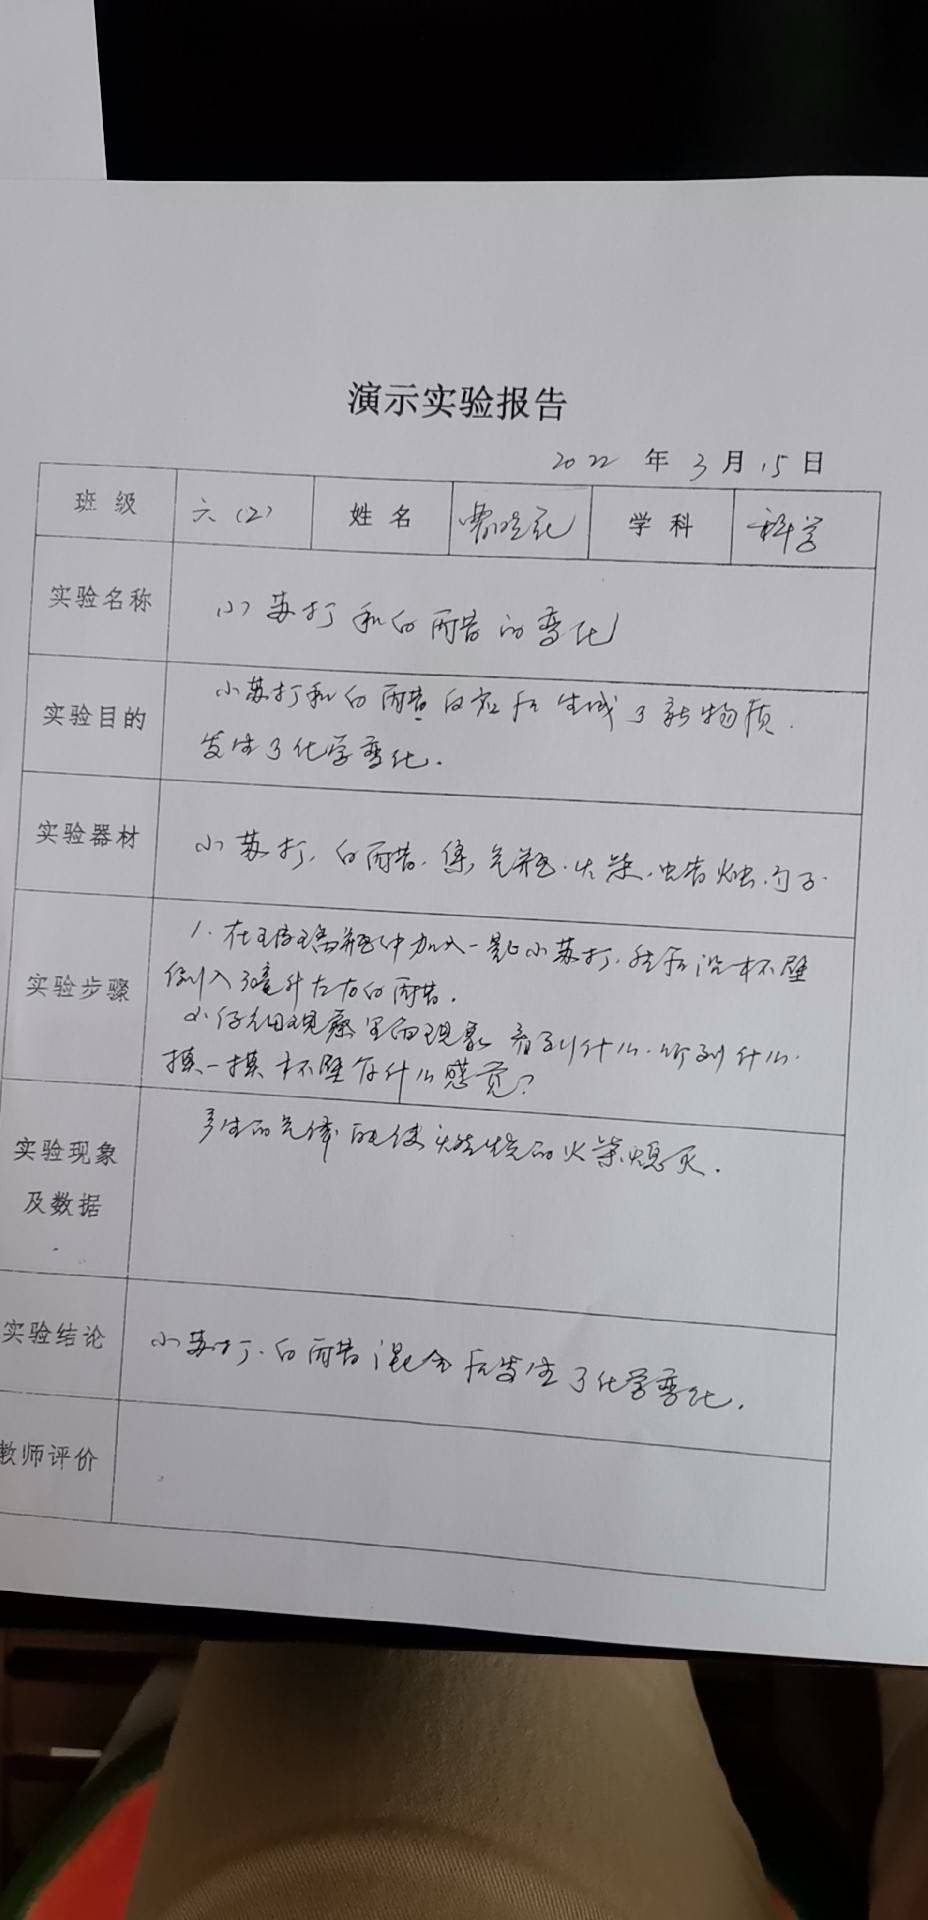 演示实验报告
2022 年 3 月 15 日
班级 六(2) 姓名 学科 科学
实验名称 小苏打和白醋的变化
实验目的 小苏打和白醋反应后生成了新物质.
发生了化学变化.
实验器材 小苏打、白醋、集气瓶、火柴、蜡烛、勺子.
实验步骤 1. 在玻璃瓶中加入一匙小苏打,然后沿杯壁
倒入3毫升左右白醋.
2. 仔细观察里面现象 看到什么.听到什么.
摸一摸杯壁有什么感觉?
实验现象及数据 产生的气体能使燃烧的火柴熄灭.
实验结论 小苏打、白醋混合后发生了化学变化.
教师评价